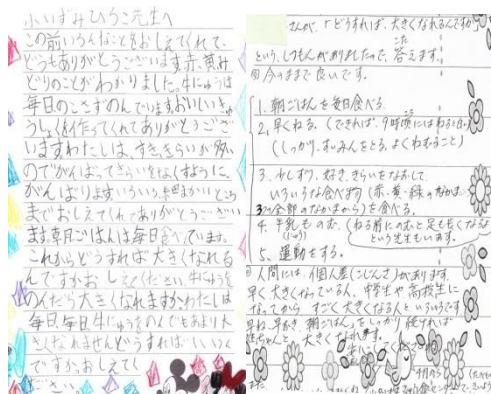 小いずみひろこ先生へ
この前いろんなことをおしえてくれて、
どうもありがとうございます。赤、黄、み
どりのことがわかりました。牛にゅうは
毎日のこさずのんでいます。おいしいきゅ
うしょくを作ってくれてありがとうござ
いますわたしは、すき、きらいが多い
のでがんばってきらいをなくすように、
がんばりますいろいろ細まかいところ
までおしえてくれてありがとうござい
ます朝ごはんは毎日食べています。
これからどうすれば大きくなれる
んですかおしえてください。牛にゅうを
のんだら大きくなれますかわたしは
毎日、毎日牛にゅうをのんでもあまり大
きくなれませんどうすればいいいん
ですか。おしえてく
ださい。
さんが、「どうすれば、大きくなれるんですか」
という、しつもんがありましたので、答えます。
今のままで良いです。
1. 朝ごはんを毎日食べる
2. 早くねる。(できれば、9時頃にはねると良い)
(しっかり、すいみんをとる。よくねむること)
3. 少しずつ、好き、きらいをなおして、
いろいろな食べ物(赤・黄・緑のなかま
3つ全部のなかまから)を食べる。
4. 牛乳ものむ。(ねる前にのむと足も長くなるよ
という先生もいます。
5. 運動をする。
人間には、個人差(こじんさ)があります。
早く大きくなっている人、中学生や高校生に
なってから すごく大きくなる人といろいろです
早ね、早おき、朝ごはん。しっかり
大きくなれます。